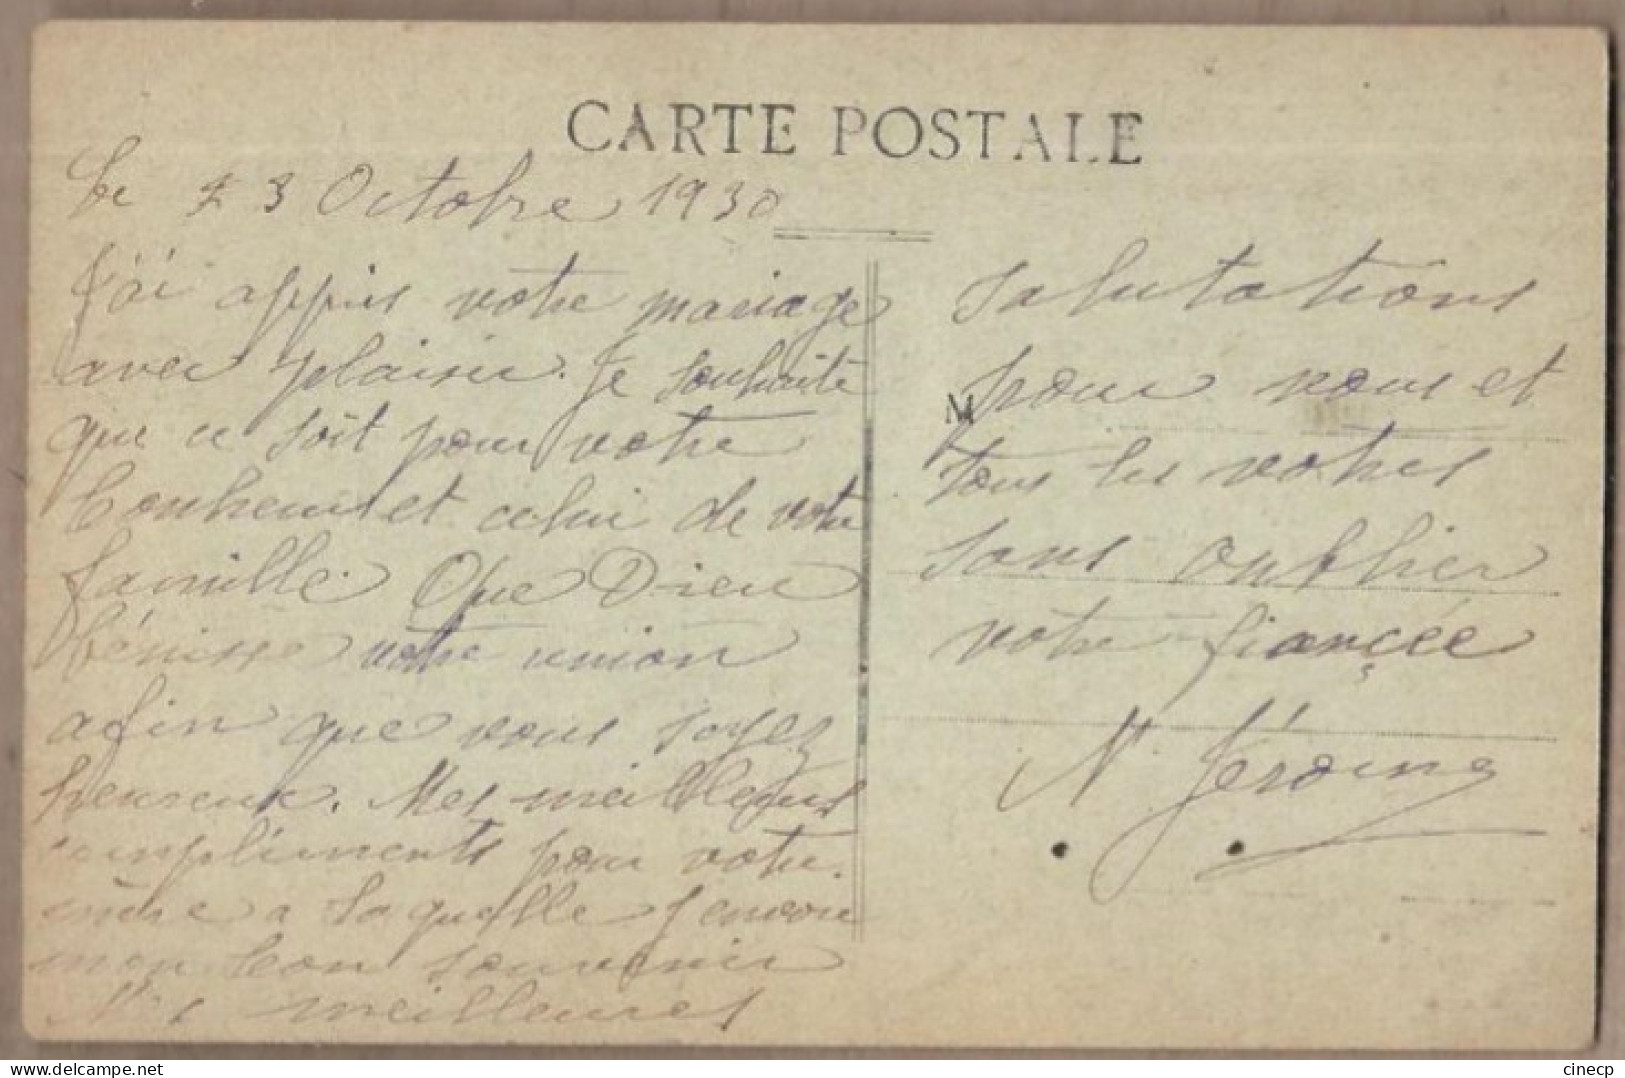 CARTE POSTALE
Le 23 Octobre 1930
J'ai appris votre mariage
avec plaisir. Je souhaite
que ce soit pour votre
bonheur et celui de votre
famille. Que Dieu
bénisse votre union
afin que vous soyez
heureux. Mes meilleurs
compliments pour votre
mère a laquelle j'envoie
mon bon souvenir
Mes meilleures
salutations
pour vous et
M
tous les votres
sans oublier
votre fiancée
cinecp